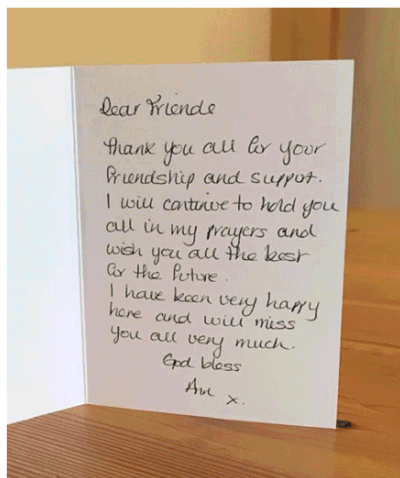 Dear Friends
Thank you all for your
friendship and support.
I will continue to hold you
all in my prayers and
wish you all the best
for the future.
I have been very happy
here and will miss
you all very much.
God bless
x.